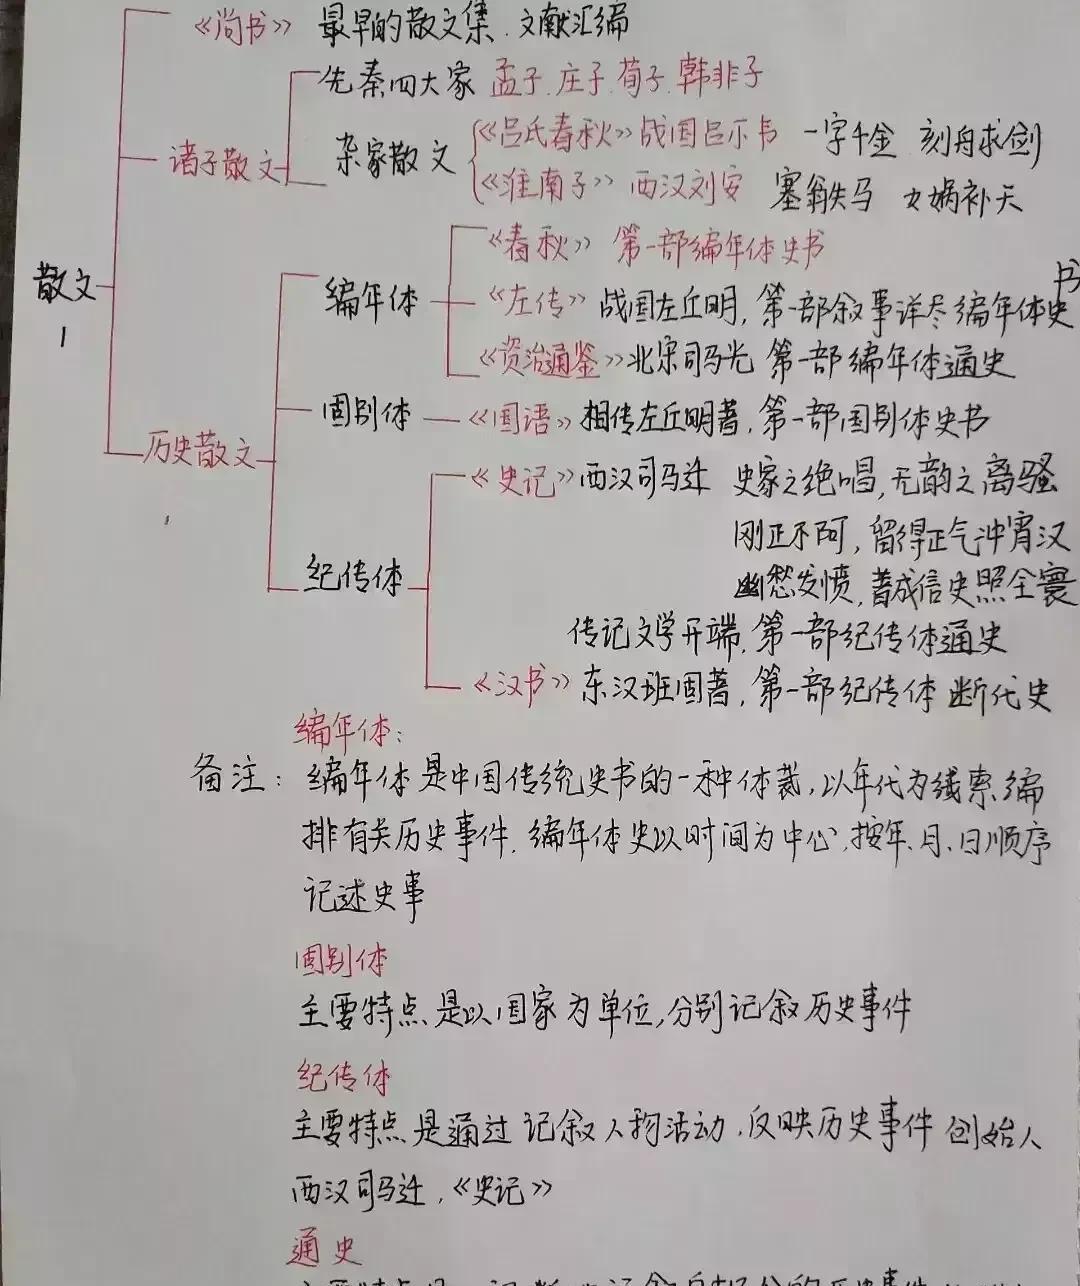 《尚书》 最早的散文集.文献汇编
先秦四大家 孟子.庄子.荀子.韩非子
诸子散文
杂家散文
《吕氏春秋》战国吕不韦 一字千金 刻舟求剑
《淮南子》 西汉刘安 塞翁失马 女娲补天
散文
1
《春秋》 第一部编年体史书
编年体
《左传》 战国左丘明,第一部叙事详尽编年体史书
《资治通鉴》北宋司马光 第一部编年体通史
国别体
《国语》相传左丘明著,第一部国别体史书
历史散文
《史记》西汉司马迁 史家之绝唱,无韵之离骚
刚正不阿,留得正气冲宵汉
幽愁发愤,著成信史照全寰
纪传体
传记文学开端,第一部纪传体通史
《汉书》东汉班固著,第一部纪传体 断代史
编年体:
备注: 编年体是中国传统史书的一种体裁,以年代为线索.编
排有关历史事件.编年体史以时间为中心.按年、月、日顺序
记述史事
国别体
主要特点是以国家为单位,分别记叙历史事件
纪传体
主要特点是通过记叙人物活动.反映历史事件 创始人
西汉司马迁.《史记》
通史